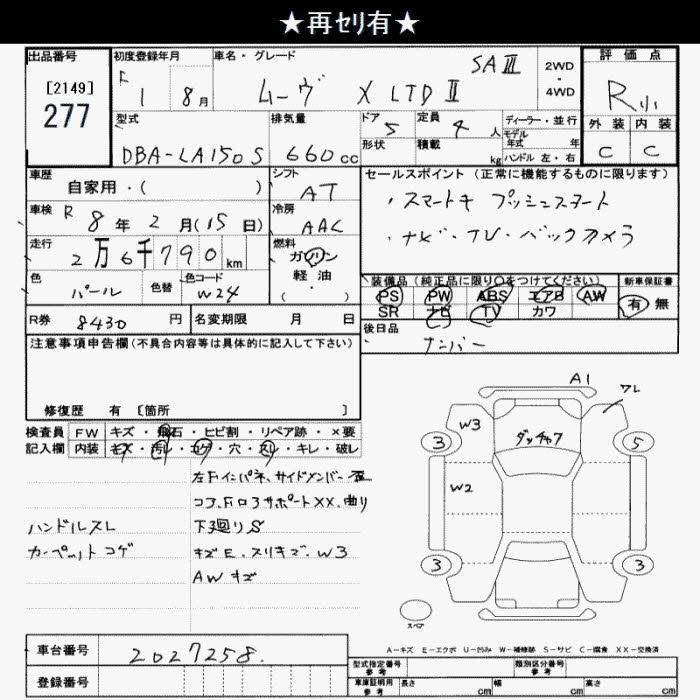 ★再セリ有★
出品番号
[2149]
277
初度登録年月
F 1 8月
車名・グレード
ムーヴ X LTD Ⅱ SAⅢ
2WD
・
4WD
評価点
R小
外装 内装
C C
型式
DBA-LA150S
排気量
660cc
ドア 5
形状
定員 4人
積載 kg
ディーラー・並行
モデル年式 年
ハンドル 左・右
車歴
自家用・( )
シフト
AT
車検 R 8年 2月(15日)
冷房
AAC
走行
2万6千790km
燃料
ガソリン
軽・油
( )
色 パール 色替
色コード
W24
セールスポイント(正常に機能するものに限ります)
・スマートキ プッシュスタート
・ナビ・TV・バックカメラ
装備品(純正品に限り○をつけてください) 新車保証書
PS PW ABS エアB AW 有 無
SR ナビ TV カワ
R券 8430円 名変期限 月 日
後日品
ナンバー
注意事項申告欄(不具合内容等は具体的に記入して下さい)
修復歴 有 [箇所 ]
検査員 FW キズ・飛石・ヒビ割・リペア跡・×要
記入欄 内装 キズ・汚レ・コゲ・穴・スレ・キレ・破レ
左Fインパネ、サイドメンバー歪
コア、FロアサポートXX、曲り
ハンドルスレ
下廻りS
カーペットコゲ
キズE、スリキズ、W3
AWキズ
A1
ワレ
W3
3
ダッチャク
5
W2
3
3
スペア
A-キズ E-エクボ U-凹み W-補修跡 S-サビ C-腐食 XX-交換済
車台番号 2027258.
登録番号
型式指定番号 参考
類別区分番号 参考
車庫証明用 参考 長さ cm 幅 cm 高さ cm